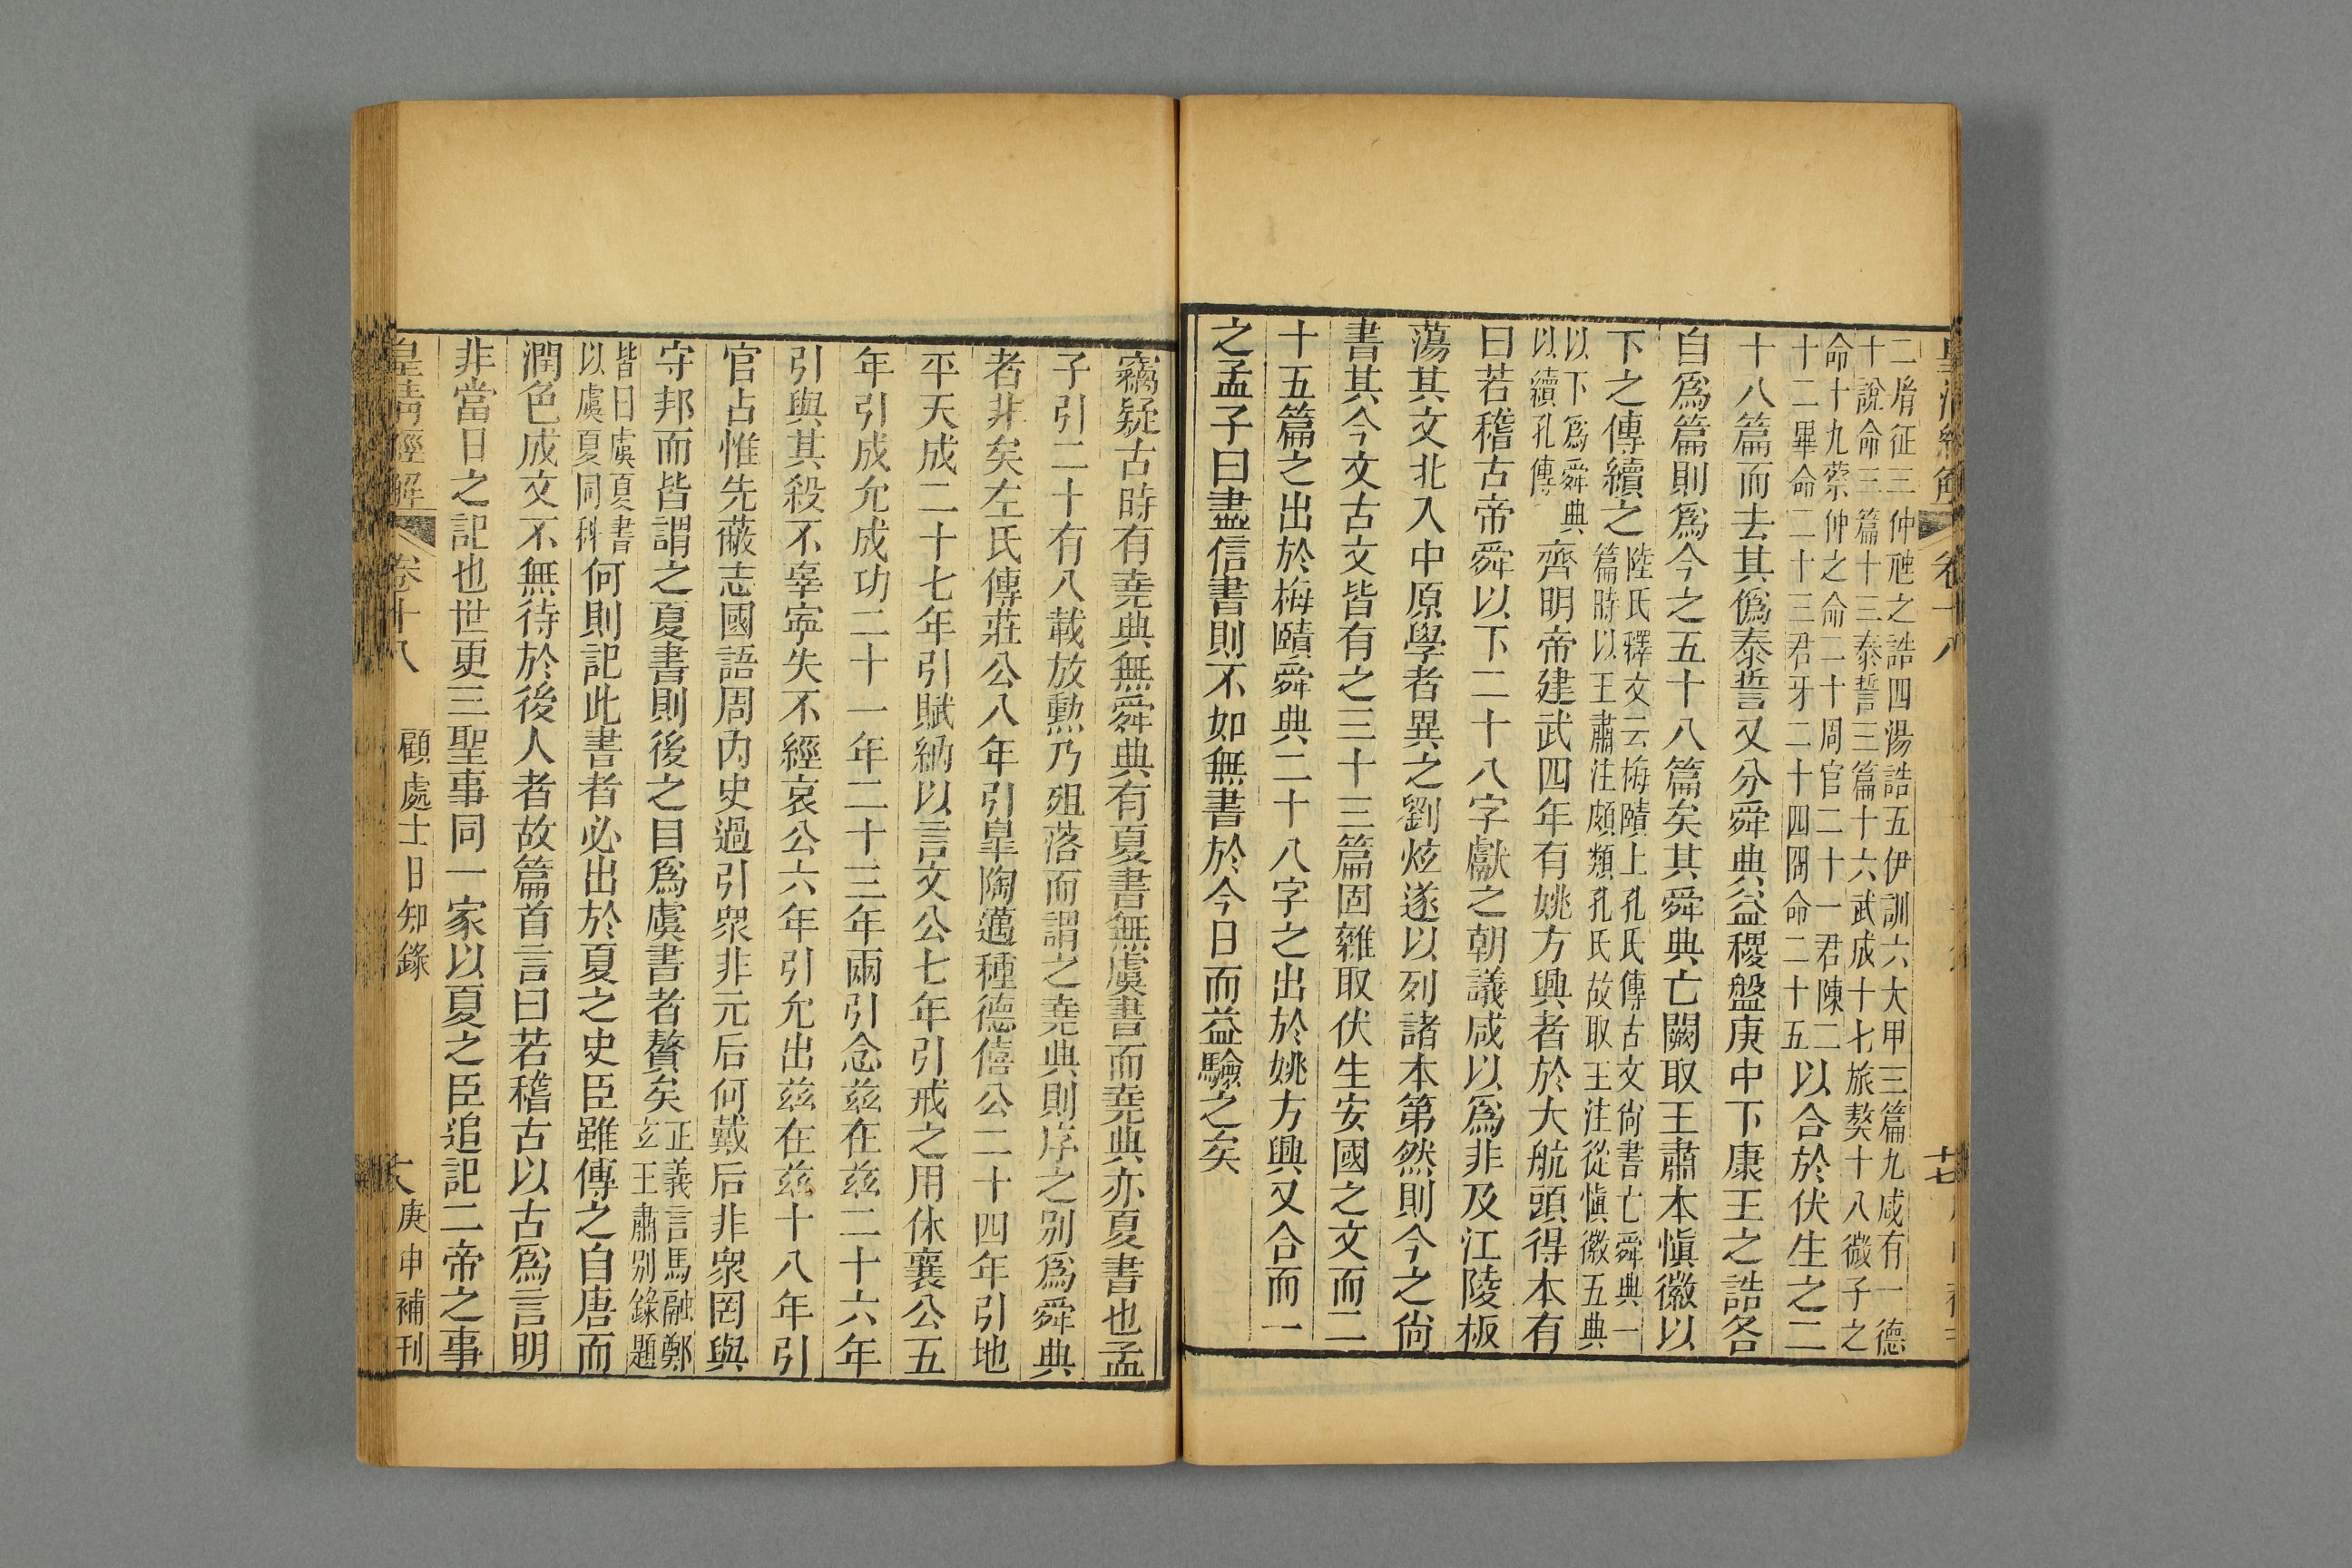 二㣧征三仲虺之誥四湯誥五伊訓六大甲三篇九咸有一德
十說命三篇十三泰誓三篇十六武成十七旅獒十八微子之
命十九蔡仲之命二十周官二十一君陳二
十二畢命二十三君牙二十四冏命二十五以合於伏生之二
十八篇而去其僞泰誓又分舜典益稷盤庚中下康王之誥各
自爲篇則爲今之五十八篇矣其舜典亡闕取王肅本愼徽以
下之傳續之陸氏釋文云梅賾上孔氏傳古文尙書亡舜典一
篇時以王肅注頗類孔氏故取王注從愼徽五典
以下爲舜典
以續孔傳齊明帝建武四年有姚方興者於大航頭得本有
曰若稽古帝舜以下二十八字獻之朝議咸以爲非及江陵板
蕩其文北入中原學者異之劉炫遂以列諸本第然則今之尙
書其今文古文皆有之三十三篇固雜取伏生安國之文而二
十五篇之出於梅賾舜典二十八字之出於姚方興又合而一
之孟子曰盡信書則不如無書於今日而益驗之矣
竊疑古時有堯典無舜典有夏書無虞書而堯典亦夏書也孟
子引二十有八載放勲乃殂落而謂之堯典則序之別爲舜典
者非矣左氏傳莊公八年引皐陶邁種德僖公二十四年引地
平天成二十七年引賦納以言文公七年引戒之用休襄公五
年引成允成功二十一年二十三年兩引念茲在茲二十六年
引與其殺不辜寧失不經哀公六年引允出茲在茲十八年引
官占惟先蔽志國語周內史過引眾非元后何戴后非眾罔與
守邦而皆謂之夏書則後之目爲虞書者贅矣正義言馬融鄭
玄王肅別錄題
皆曰虞夏書
以虞夏同科何則記此書者必出於夏之史臣雖傳之自唐而
潤色成文不無待於後人者故篇首言曰若稽古以古爲言明
非當日之記也世更三聖事同一家以夏之臣追記二帝之事
皇清經解 卷十八 顧處士日知錄 庚申補刊